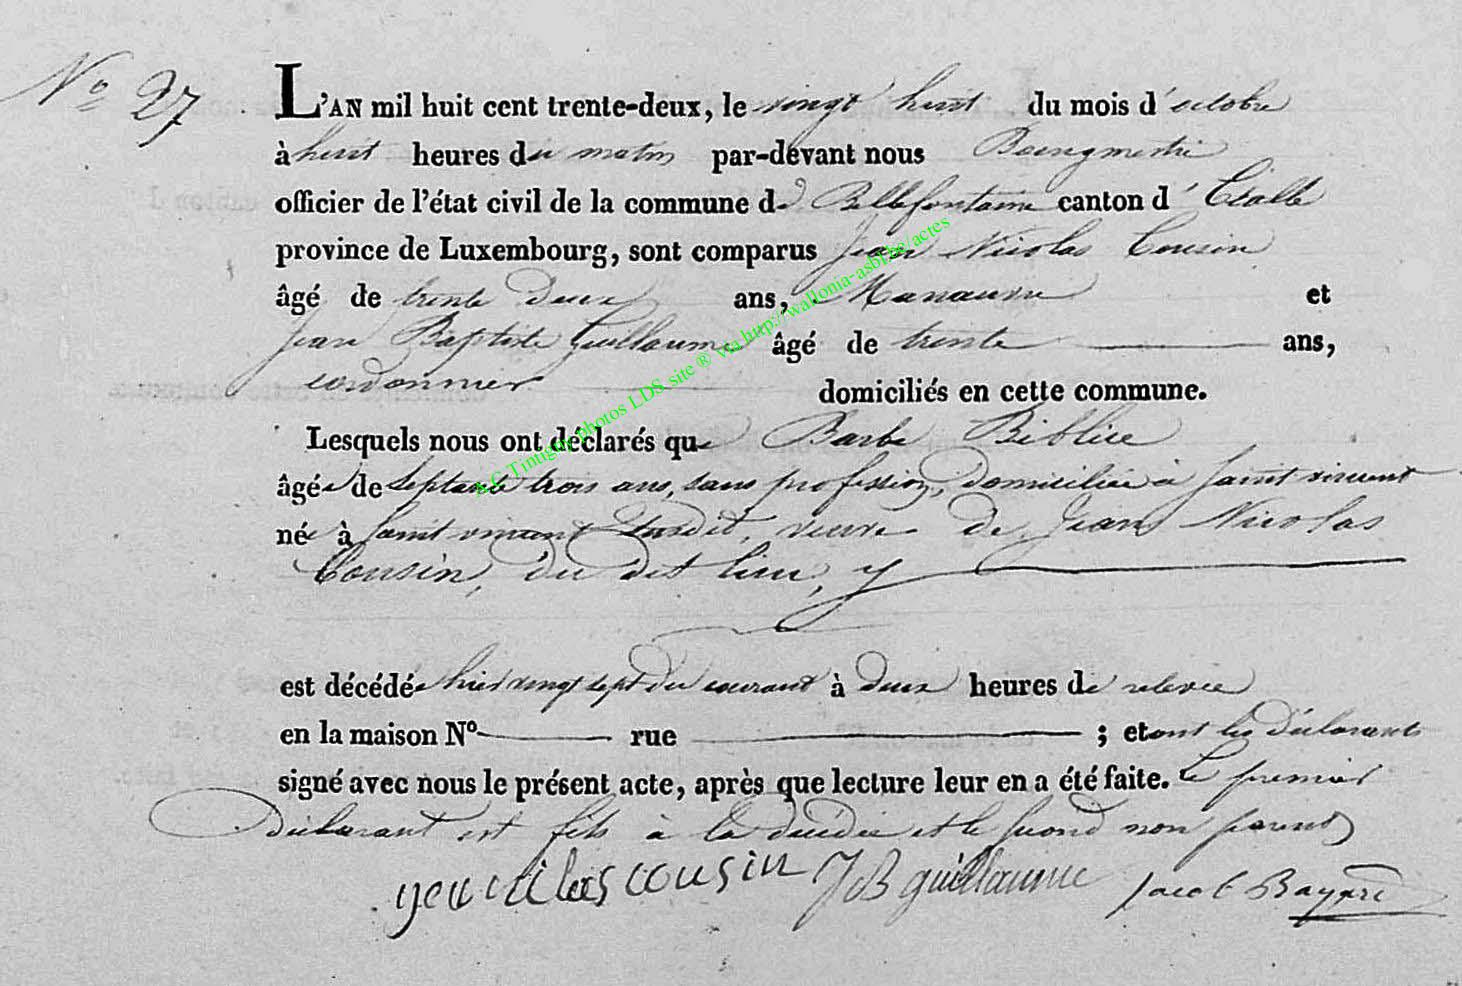 N° 27
L'AN mil huit cent trente-deux, le vingt huit du mois d'octobre
à huit heures du matin par-devant nous Bourgmestre
officier de l'état civil de la commune de Bellefontaine canton d'Etalle
province de Luxembourg, sont comparus Jean Nicolas Cousin
âgé de trente deux ans, Manœuvre et
Jean Baptiste Guillaume âgé de trente ans,
cordonnier domiciliés en cette commune.
Lesquels nous ont déclarés que Barbe
âgée de septante trois ans, sans profession, domiciliée à Saint vincent
née à Saint vincent susdit, veuve de Jean Nicolas
Cousin, du dit lieu, y
est décédée hier vingt sept du courant à deux heures de relevée
en la maison N° rue ; et ont les déclarants
signé avec nous le présent acte, après que lecture leur en a été faite. Le premier
déclarant est fils à la décédée et le second non parent
JB guillaume Jacob
A.C Tintigny photos LDS site ® via http://wallonia-asbl.be/actes